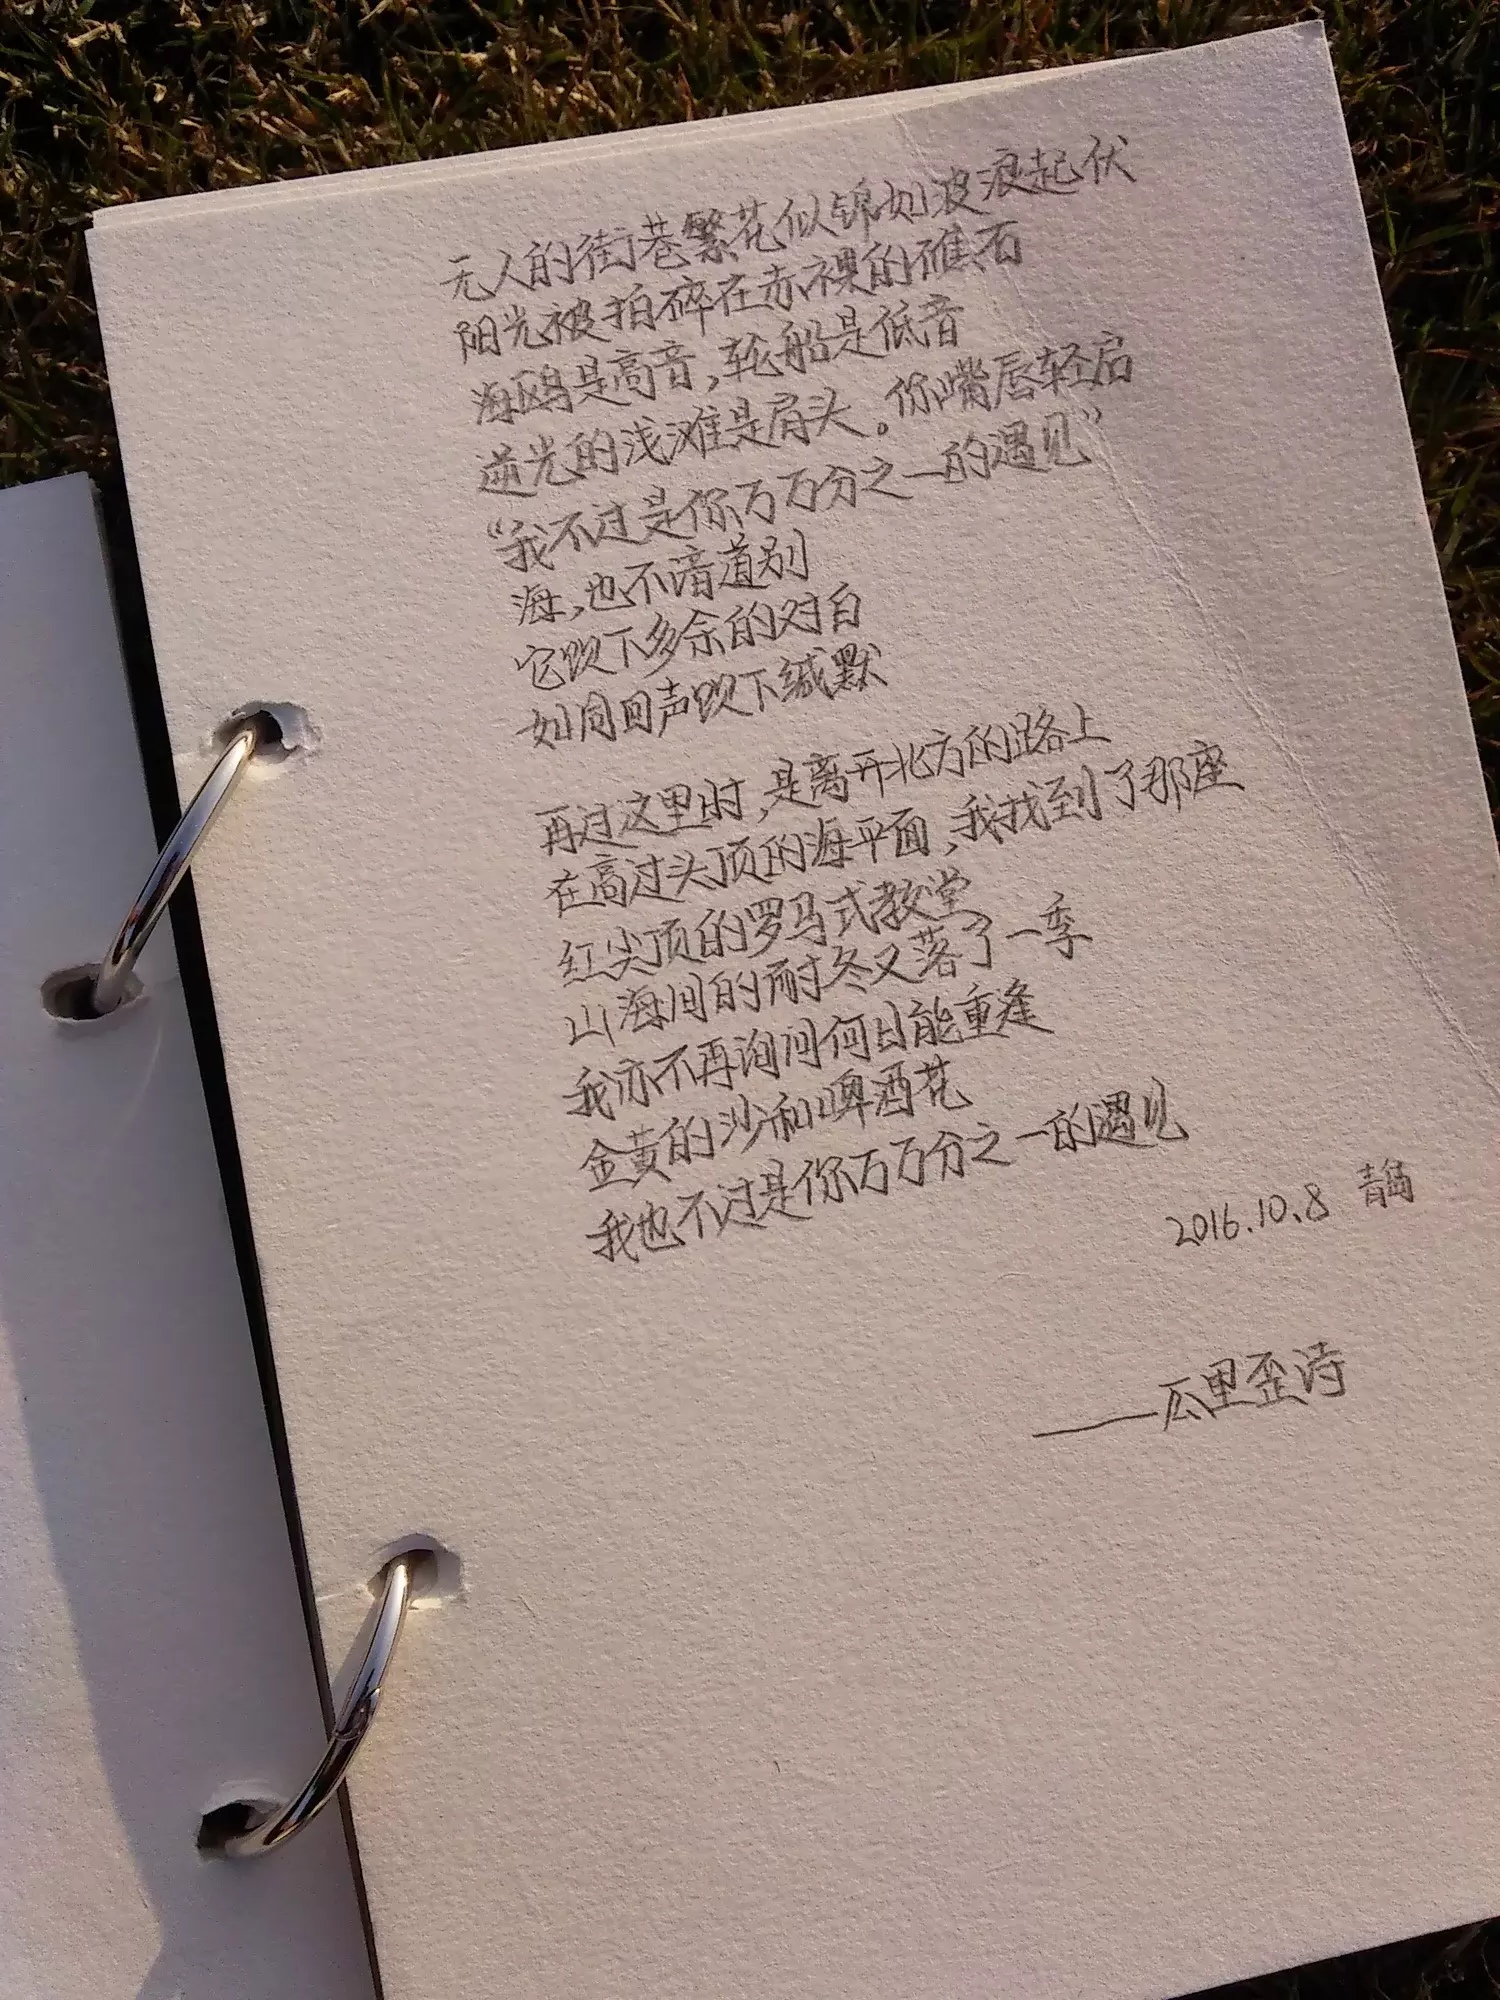 无人的街巷繁花似锦如波浪起伏
阳光被拍碎在赤裸的礁石
海鸥是高音，轮船是低音
逆光的浅滩是肩头。你嘴唇轻启
“我不过是你万万分之一的遇见”
海，也不谙道别
它咽下多余的对白
如同回声咽下缄默
再过这里时，是离开北方的路上
在高过头顶的海平面，我找到了那座
红尖顶的罗马式教堂
山海间的耐冬又落了一季
我亦不再询问何日能重逢
金黄的沙和啤酒花
我也不过是你万万分之一的遇见
2016.10.8 青岛
——瓜里歪诗